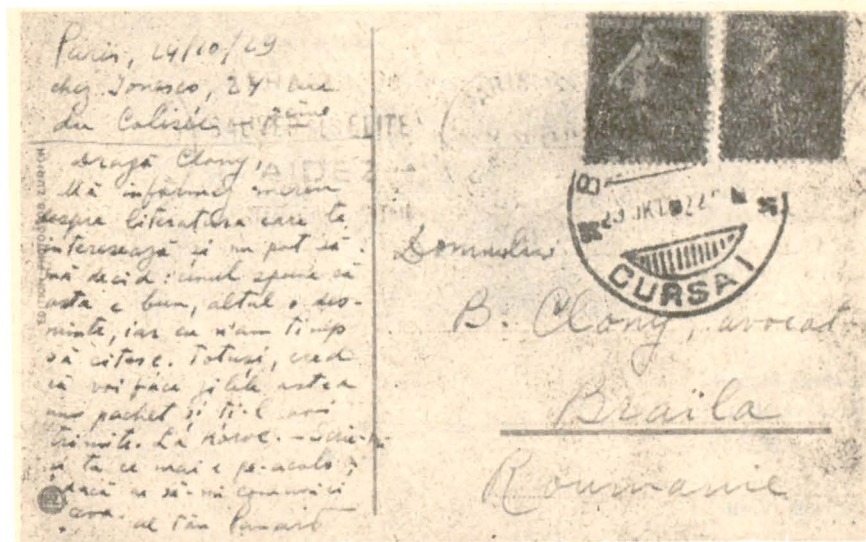 Paris, 24/10/29
chez Ionesco, 24 rue
du Colisée
Dragă Clony,
Mă informez mereu
despre literatura care te
interesează și nu pot să
mă decid: unul spune că
asta e bun, altul o des-
minte, iar eu n'am timp
să citesc. Totuși, cred
că voi face zilele astea
un pachet și ți-l voi
trimite. La noroc. – Scrie-mi
ce mai e pe-acolo,
dacă ai să-mi comunici
ceva. al tău Panait
EDITION PHOTOGLOB ZURICH
AIDEZ
CURSA I
Domnului
B. Clony, avocat
Braïla
Roumanie